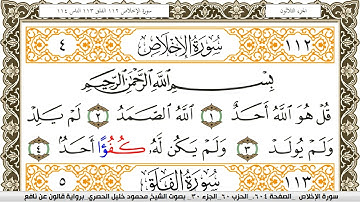 الجزء الثلاثون
سورة الإخلاص ١١٢ الفلق ١١٣ الناس ١١٤
١١٢ سُورَةُ الإِخْلَاصِ ٤
بِسْمِ اللَّهِ الرَّحْمَٰنِ الرَّحِيمِ
قُلْ هُوَ اللَّهُ أَحَدٌ ١ اللَّهُ الصَّمَدُ ٢ لَمْ يَلِدْ
وَلَمْ يُولَدْ ٣ وَلَمْ يَكُن لَّهُ كُفُؤًا أَحَدٌ ٤
١١٣ سُورَةُ الفَلَقِ ٥
سورة الإخلاص الصفحة ٦٠٤ الحزب ٦٠ الجزء ٣٠ بصوت الشيخ محمود خليل الحصري برواية قالون عن نافع